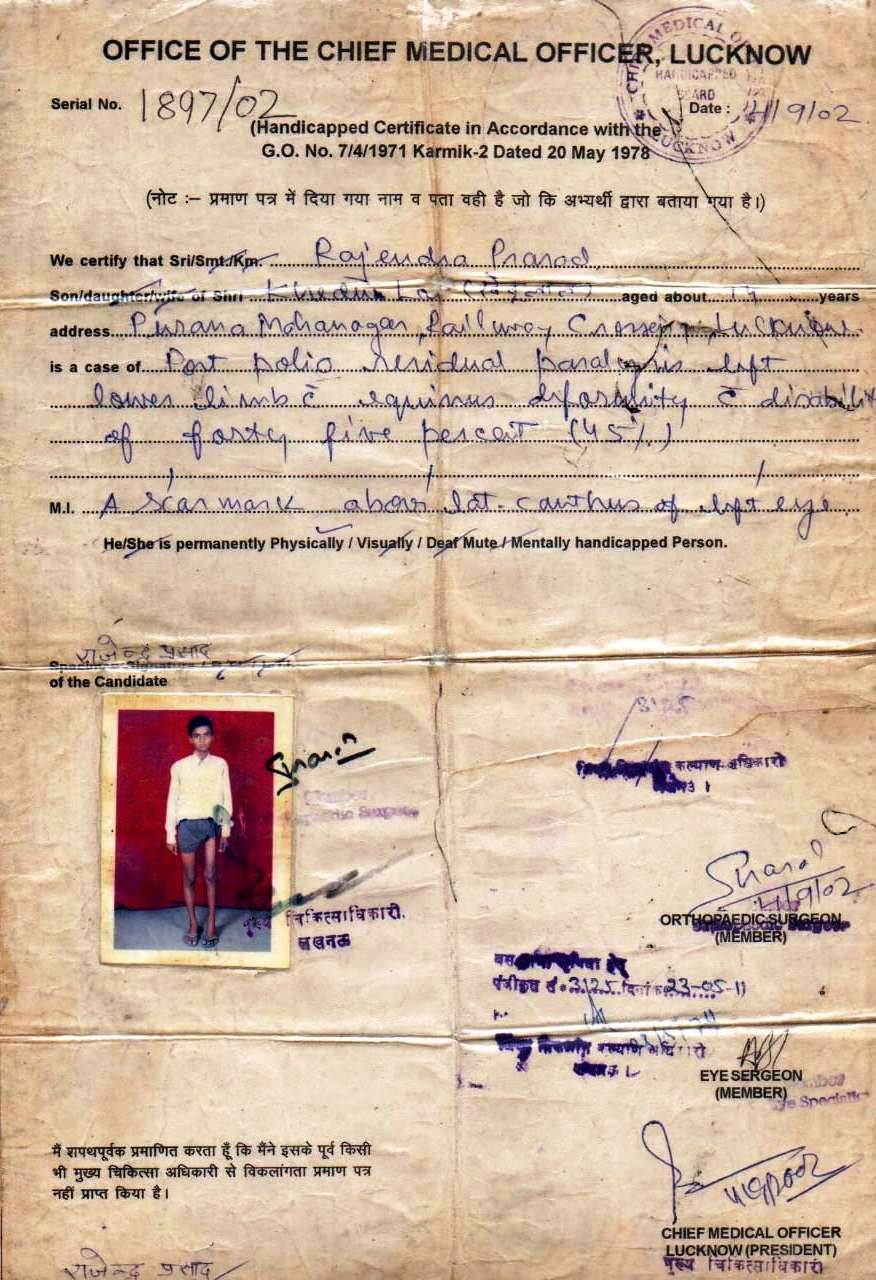 OFFICE OF THE CHIEF MEDICAL OFFICER, LUCKNOW
CHIEF MEDICAL
HANDICAPPED
BOARD
LUCKNOW
Serial No. 1897/02 Date : /9/02
(Handicapped Certificate in Accordance with the
G.O. No. 7/4/1971 Karmik-2 Dated 20 May 1978
(नोट :– प्रमाण पत्र में दिया गया नाम व पता वही है जो कि अभ्यर्थी द्वारा बताया गया है।)
We certify that Sri/Smt./Km. Rajendra Prasad
Son/daughter/wife of Shri Lal aged about years
address Purana Mahanagar, Railway Crossing, Lucknow.
is a case of Post polio residual paralysis left
lower limb c̄ equinus deformity c̄ disability
of forty five percent (45%)
M.I. A scar mark above lat. canthus of left eye
He/She is permanently Physically / Visually / Deaf Mute / Mentally handicapped Person.
राजेन्द्र प्रसाद
of the Candidate
3125
कल्याण अधिकारी
Orthopaedic Surgeon
मुख्य चिकित्साधिकारी,
लखनऊ
/9/02
ORTHOPAEDIC SURGEON
(MEMBER)
हेतु
पंजीकृत सं. 3125 दिनांक 23-05-11
कल्याण अधिकारी
EYE SERGEON
(MEMBER)
Member
Eye Specialist
मैं शपथपूर्वक प्रमाणित करता हूँ कि मैंने इसके पूर्व किसी
भी मुख्य चिकित्सा अधिकारी से विकलांगता प्रमाण पत्र
नहीं प्राप्त किया है।
CHIEF MEDICAL OFFICER
LUCKNOW (PRESIDENT)
मुख्य चिकित्साधिकारी
राजेन्द्र प्रसाद